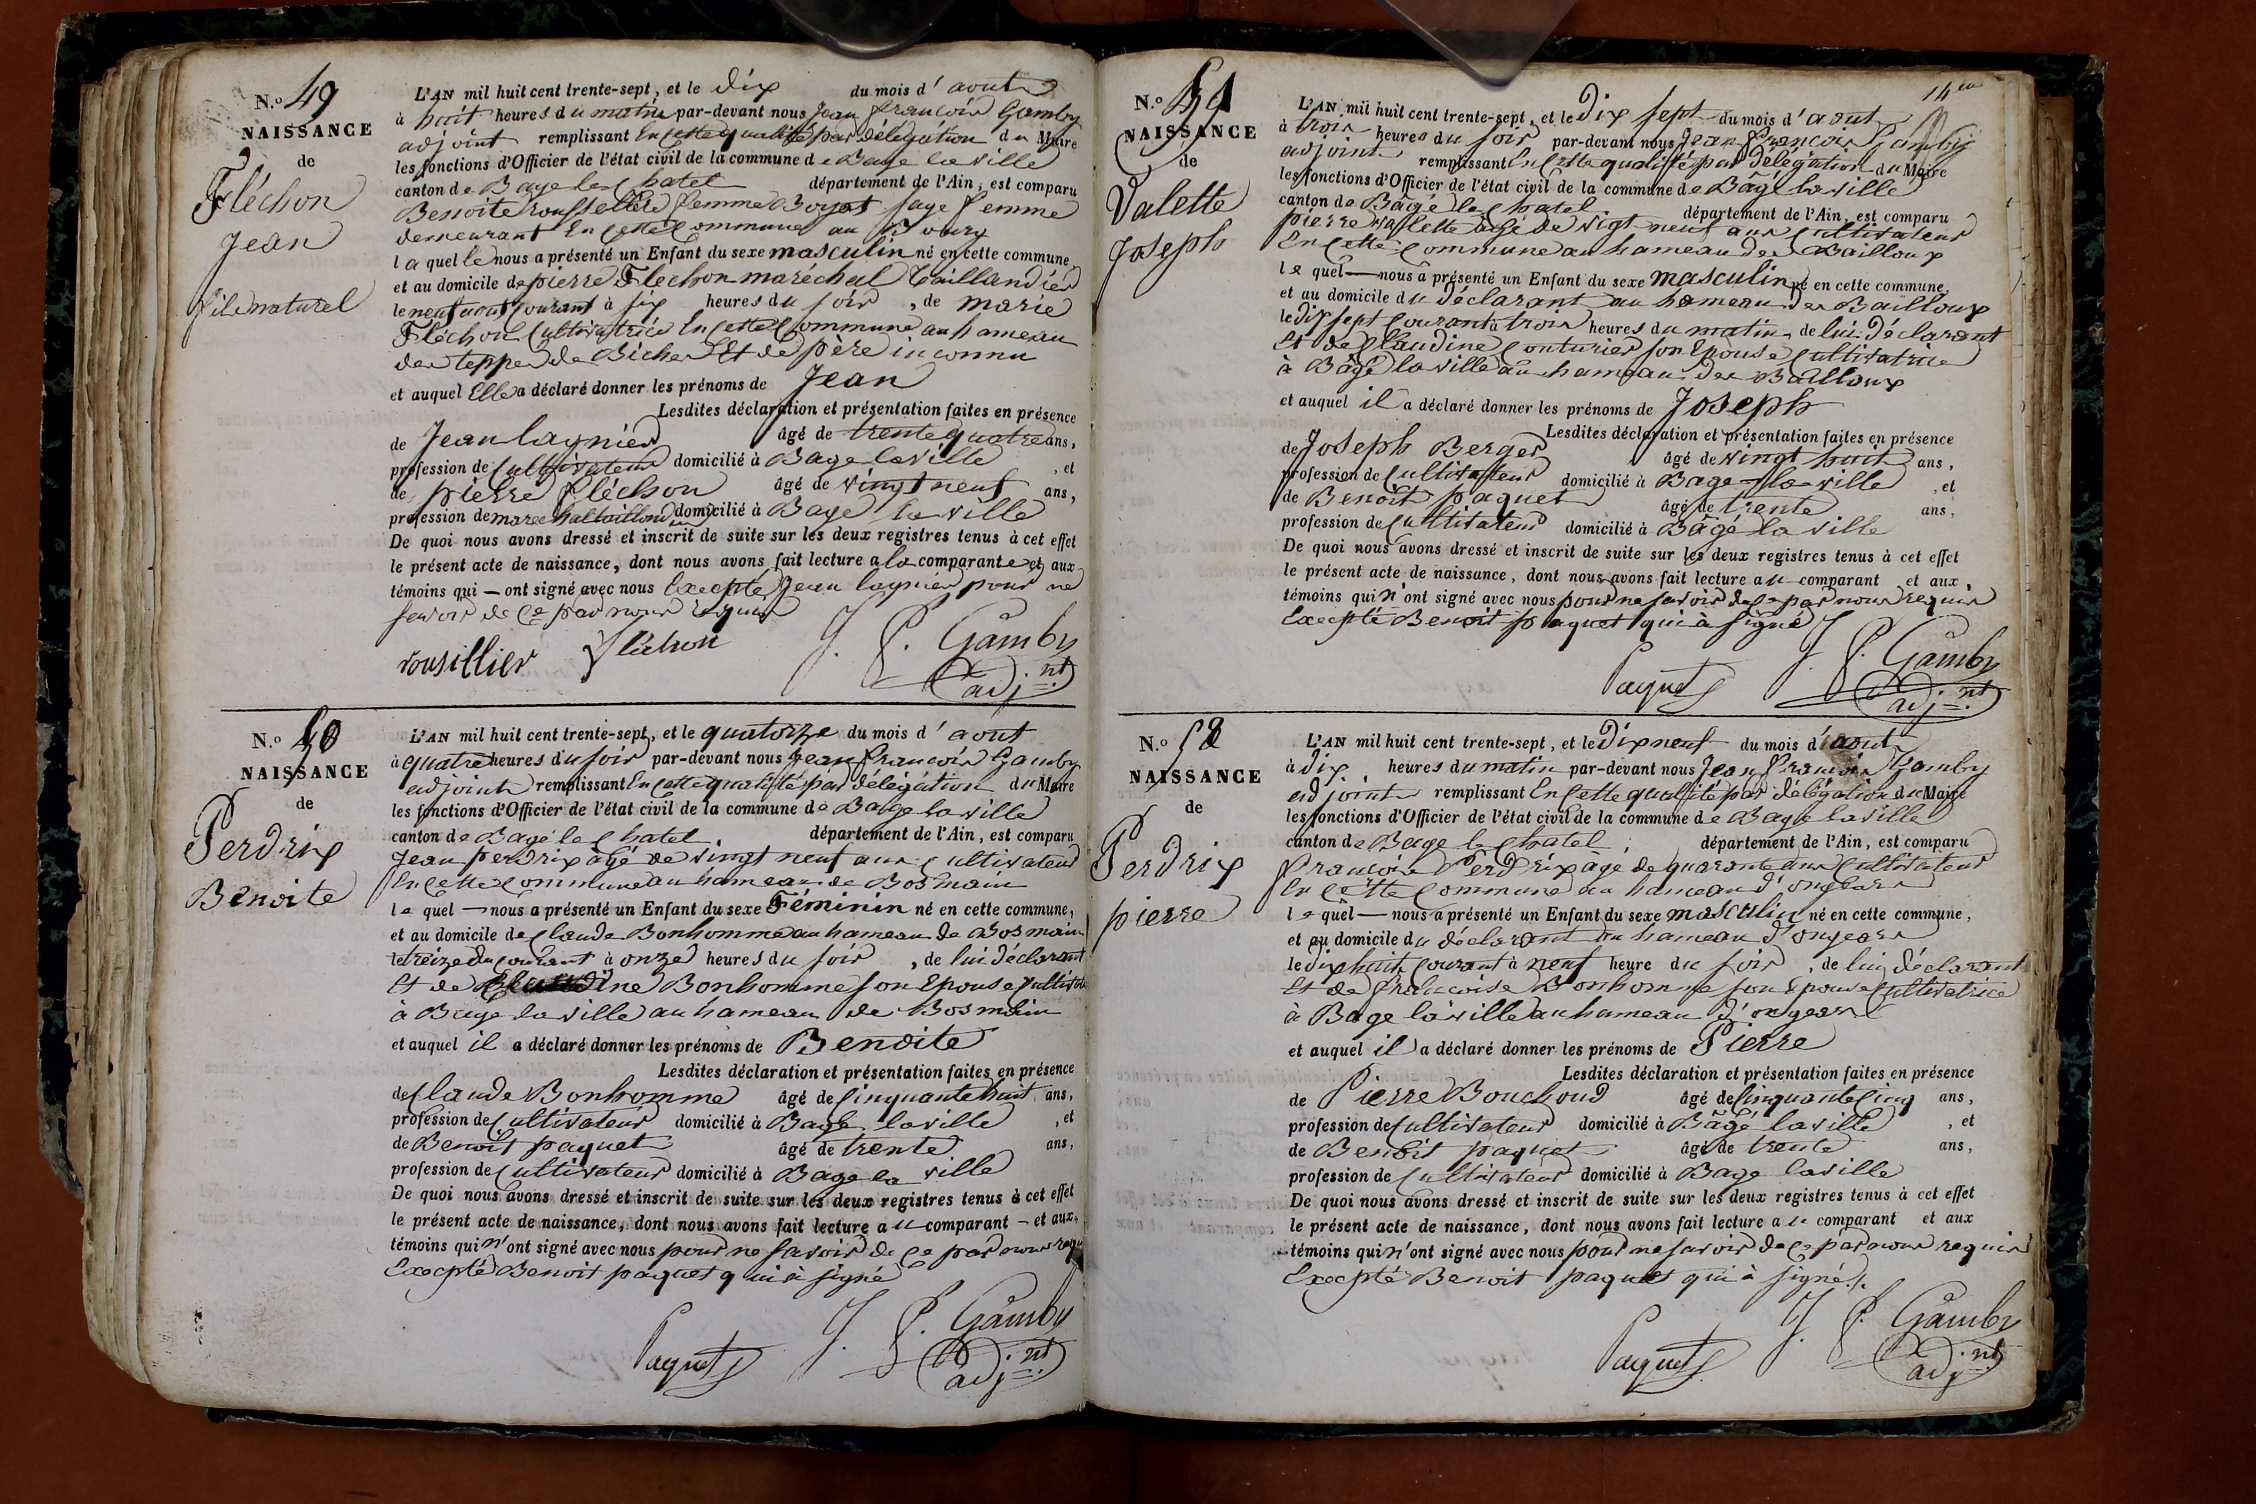 N.o 49
NAISSANCE
de
Fléchon
Jean
fils naturel
L'AN mil huit cent trente-sept, et le dix du mois d'aout
à huit heures du matin par-devant nous Jean françois Gamby
adjoint remplissant En cette qualité par délégation du Maire
les fonctions d'Officier de l'état civil de la commune de Bage la ville
canton de Bage le Chatel département de l'Ain, est comparu
Benoite femme Boyat sage femme
demeurant En cette Commune au Bourg
laquelle nous a présenté un Enfant du sexe masculin né en cette commune
et au domicile de pierre Flechon maréchal taillandier
le neuf aout courant à six heures du soir, de marie
Fléchon Cultivatrice En cette Commune au hameau
des teppes de Biches Et de père inconnu
et auquel Elle a déclaré donner les prénoms de Jean
Lesdites déclaration et présentation faites en présence
de Jean lagnier âgé de trente quatre ans,
profession de Cultivateur domicilié à Bage la ville, et
de pierre fléchon âgé de vingt neuf ans,
profession de domicilié à Bage la ville
De quoi nous avons dressé et inscrit de suite sur les deux registres tenus à cet effet
le présent acte de naissance, dont nous avons fait lecture a la comparante et aux
témoins qui — ont signé avec nous Excepté Jean lagnier pour ne
savoir de Ce par nous requis
rousillier flechon J. F. Gamby
adj.nt
N.o 50
NAISSANCE
de
Perdrix
Benoite
L'AN mil huit cent trente-sept, et le quatorze du mois d'aout
à quatre heures du soir par-devant nous Jean françois Gamby
adjoint remplissant En cette qualité par délégation du Maire
les fonctions d'Officier de l'état civil de la commune de Bage la ville
canton de Bagé le Chatel département de l'Ain, est comparu
Jean perdrix âgé de vingt neuf ans Cultivateur
En cette Commune au hameau de Bosmain
lequel — nous a présenté un Enfant du sexe Féminin né en cette commune,
et au domicile de Claude Bonhomme au hameau de Bosmain
le treize du courant à onze heures du soir, de lui déclarant
Et de Claudine Bonhomme son Epouse
à Bage la ville au hameau de Bosmain
et auquel il a déclaré donner les prénoms de Benoite
Lesdites déclaration et présentation faites en présence
de Claude Bonhomme âgé de Cinquante huit ans,
profession de Cultivateur domicilié à Bage la ville, et
de Benoit paquet âgé de trente ans,
profession de Cultivateur domicilié à Bage la ville
De quoi nous avons dressé et inscrit de suite sur les deux registres tenus à cet effet
le présent acte de naissance, dont nous avons fait lecture au comparant — et aux
témoins qui n'ont signé avec nous pour ne savoir de Ce par nous requ
Excepté Benoit paquet qui à signé
Paquet J. F. Gamby
adj.nt
14
N.o 51
NAISSANCE
de
Valette
Joseph
L'AN mil huit cent trente-sept, et le dix sept du mois d'aout
à trois heures du soir par-devant nous Jean françois Gamby
adjoint remplissant En cette qualité par délégation du Maire
les fonctions d'Officier de l'état civil de la commune de Bâgé la ville
canton de Bâgé le Chatel département de l'Ain, est comparu
pierre vallette âgé de vigt neuf ans Cultivateur
En cette Commune au hameau des Bailloux
lequel — nous a présenté un Enfant du sexe masculin né en cette commune,
et au domicile du déclarant au hameau des Bailloux
le dix sept courant à trois heures du matin de lui déclarant
Et de Claudine Couturier son Epouse Cultivatrice
à Bâgé la ville au hameau des Bailloux
et auquel il a déclaré donner les prénoms de Joseph
Lesdites déclaration et présentation faites en présence
de Joseph Berger âgé de vingt huit ans,
profession de Cultivateur domicilié à Bage la ville, et
de Benoit paquet âgé de trente ans,
profession de Cultivateur domicilié à Bâgé la ville
De quoi nous avons dressé et inscrit de suite sur les deux registres tenus à cet effet
le présent acte de naissance, dont nous avons fait lecture au comparant et aux
témoins qui n'ont signé avec nous pour ne savoir de Ce par nous requis
Excepté Benoit paquet qui à signé
Paquet J. F. Gamby
adj.nt
N.o 52
NAISSANCE
de
Perdrix
pierre
L'AN mil huit cent trente-sept, et le Dix neuf du mois d'aout
à dix heures du matin par-devant nous Jean françois Gamby
adjoint remplissant En cette qualité par délégation du Maire
les fonctions d'Officier de l'état civil de la commune de Bage la ville
canton de Bage le Chatel département de l'Ain, est comparu
françois Perdrix age de quarante ans Cultivateur
En cette Commune au hameau d'ongears
lequel — nous a présenté un Enfant du sexe masculin né en cette commune,
et au domicile du déclarant au hameau d'ongears
le dix huit courant à neuf heure du soir, de lui déclarant
Et de françoise Bonhomme son Epouse Cultivatrice
à Bage la ville au hameau d'ongears
et auquel il a déclaré donner les prénoms de Pierre
Lesdites déclaration et présentation faites en présence
de Pierre Bouchoud âgé de Cinquante Cinq ans,
profession de Cultivateur domicilié à Bâgé la ville, et
de Benoit paquet âgé de trente ans,
profession de Cultivateur domicilié à Bage la ville
De quoi nous avons dressé et inscrit de suite sur les deux registres tenus à cet effet
le présent acte de naissance, dont nous avons fait lecture au comparant et aux
témoins qui n'ont signé avec nous pour ne savoir de Ce par nous requis
Excepté Benoit paquet qui à signé
Paquet J. F. Gamby
adj.nt